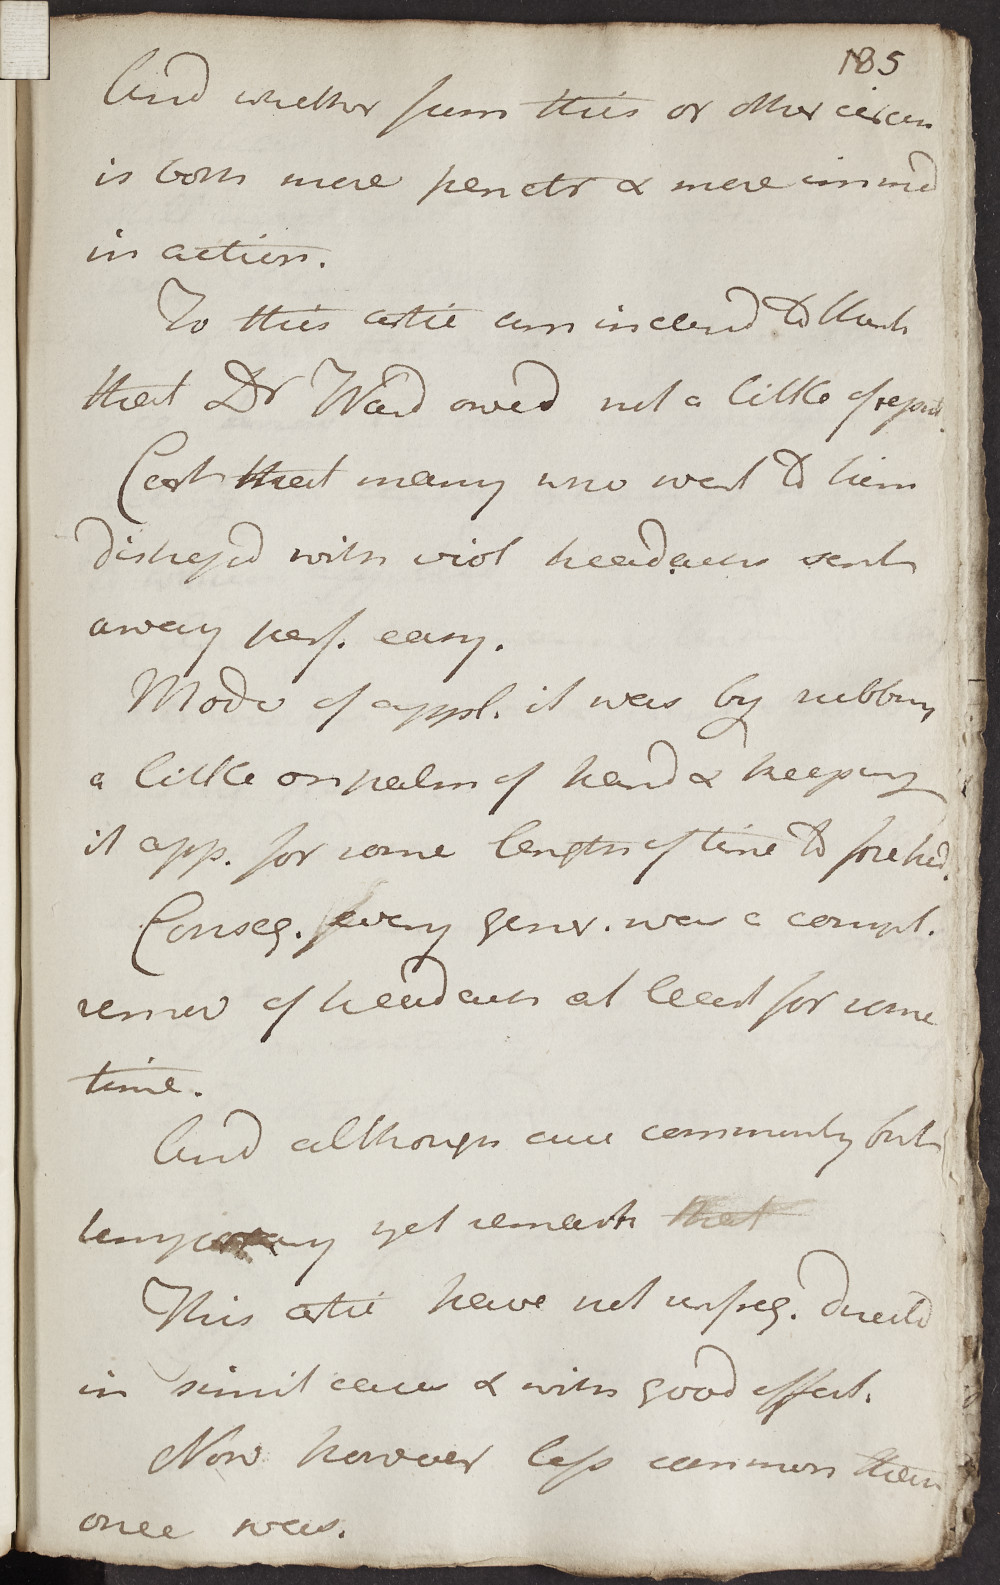 185
And whether from this or other circum
is both more penetr & more immed
in action.
To this artic am inclend to think
that Dr Ward owed not a little of reput.
Cert that many who went to him
distressd with viol headachs sent
away perf. easy.
Mode of appl. it was by rubbing
a little on palm of hand & keeping
it app. for some length of time to forehed.
Conseq. very gener. was a compl.
remov of headach at least for some
time.
And although cure commonly but
temporary yet remark that
This artic have not unfreq. directd
in simil cases & with good effect.
Now however less common then
once was.